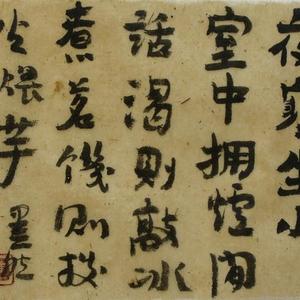 夜寒坐小
室中拥爐閒
話渴則敲冰
煮茗饑則撥
火煨芋 墨